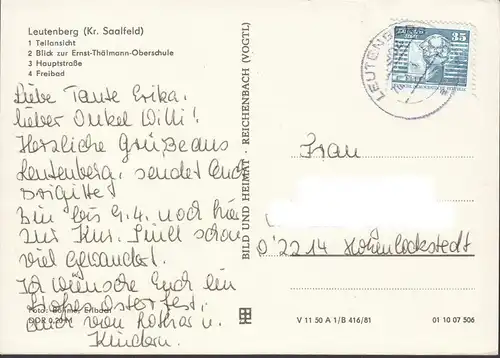 Leutenberg (Kr. Saalfeld)
1 Teilansicht
2 Blick zur Ernst-Thälmann-Oberschule
3 Hauptstraße
4 Freibad
Liebe Tante Erika!
lieber Onkel Willi!
Herzliche Grüße aus
Leutenberg, sendet Euch
Brigitte!
Bin bis 9.4. noch hier
zur Kur. Sind schon
viel gewandert.
Ich wünsche Euch ein
frohes Osterfest,
auch von Lothar u.
Kindern.
Foto: Böhme, Erlbach
DDR 0,20 M
BILD UND HEIMAT · REICHENBACH (VOGTL)
LEUTENBERG
35
Frau
O'2214 Hohenlockstedt
V 11 50 A 1/B 416/81
01 10 07 506